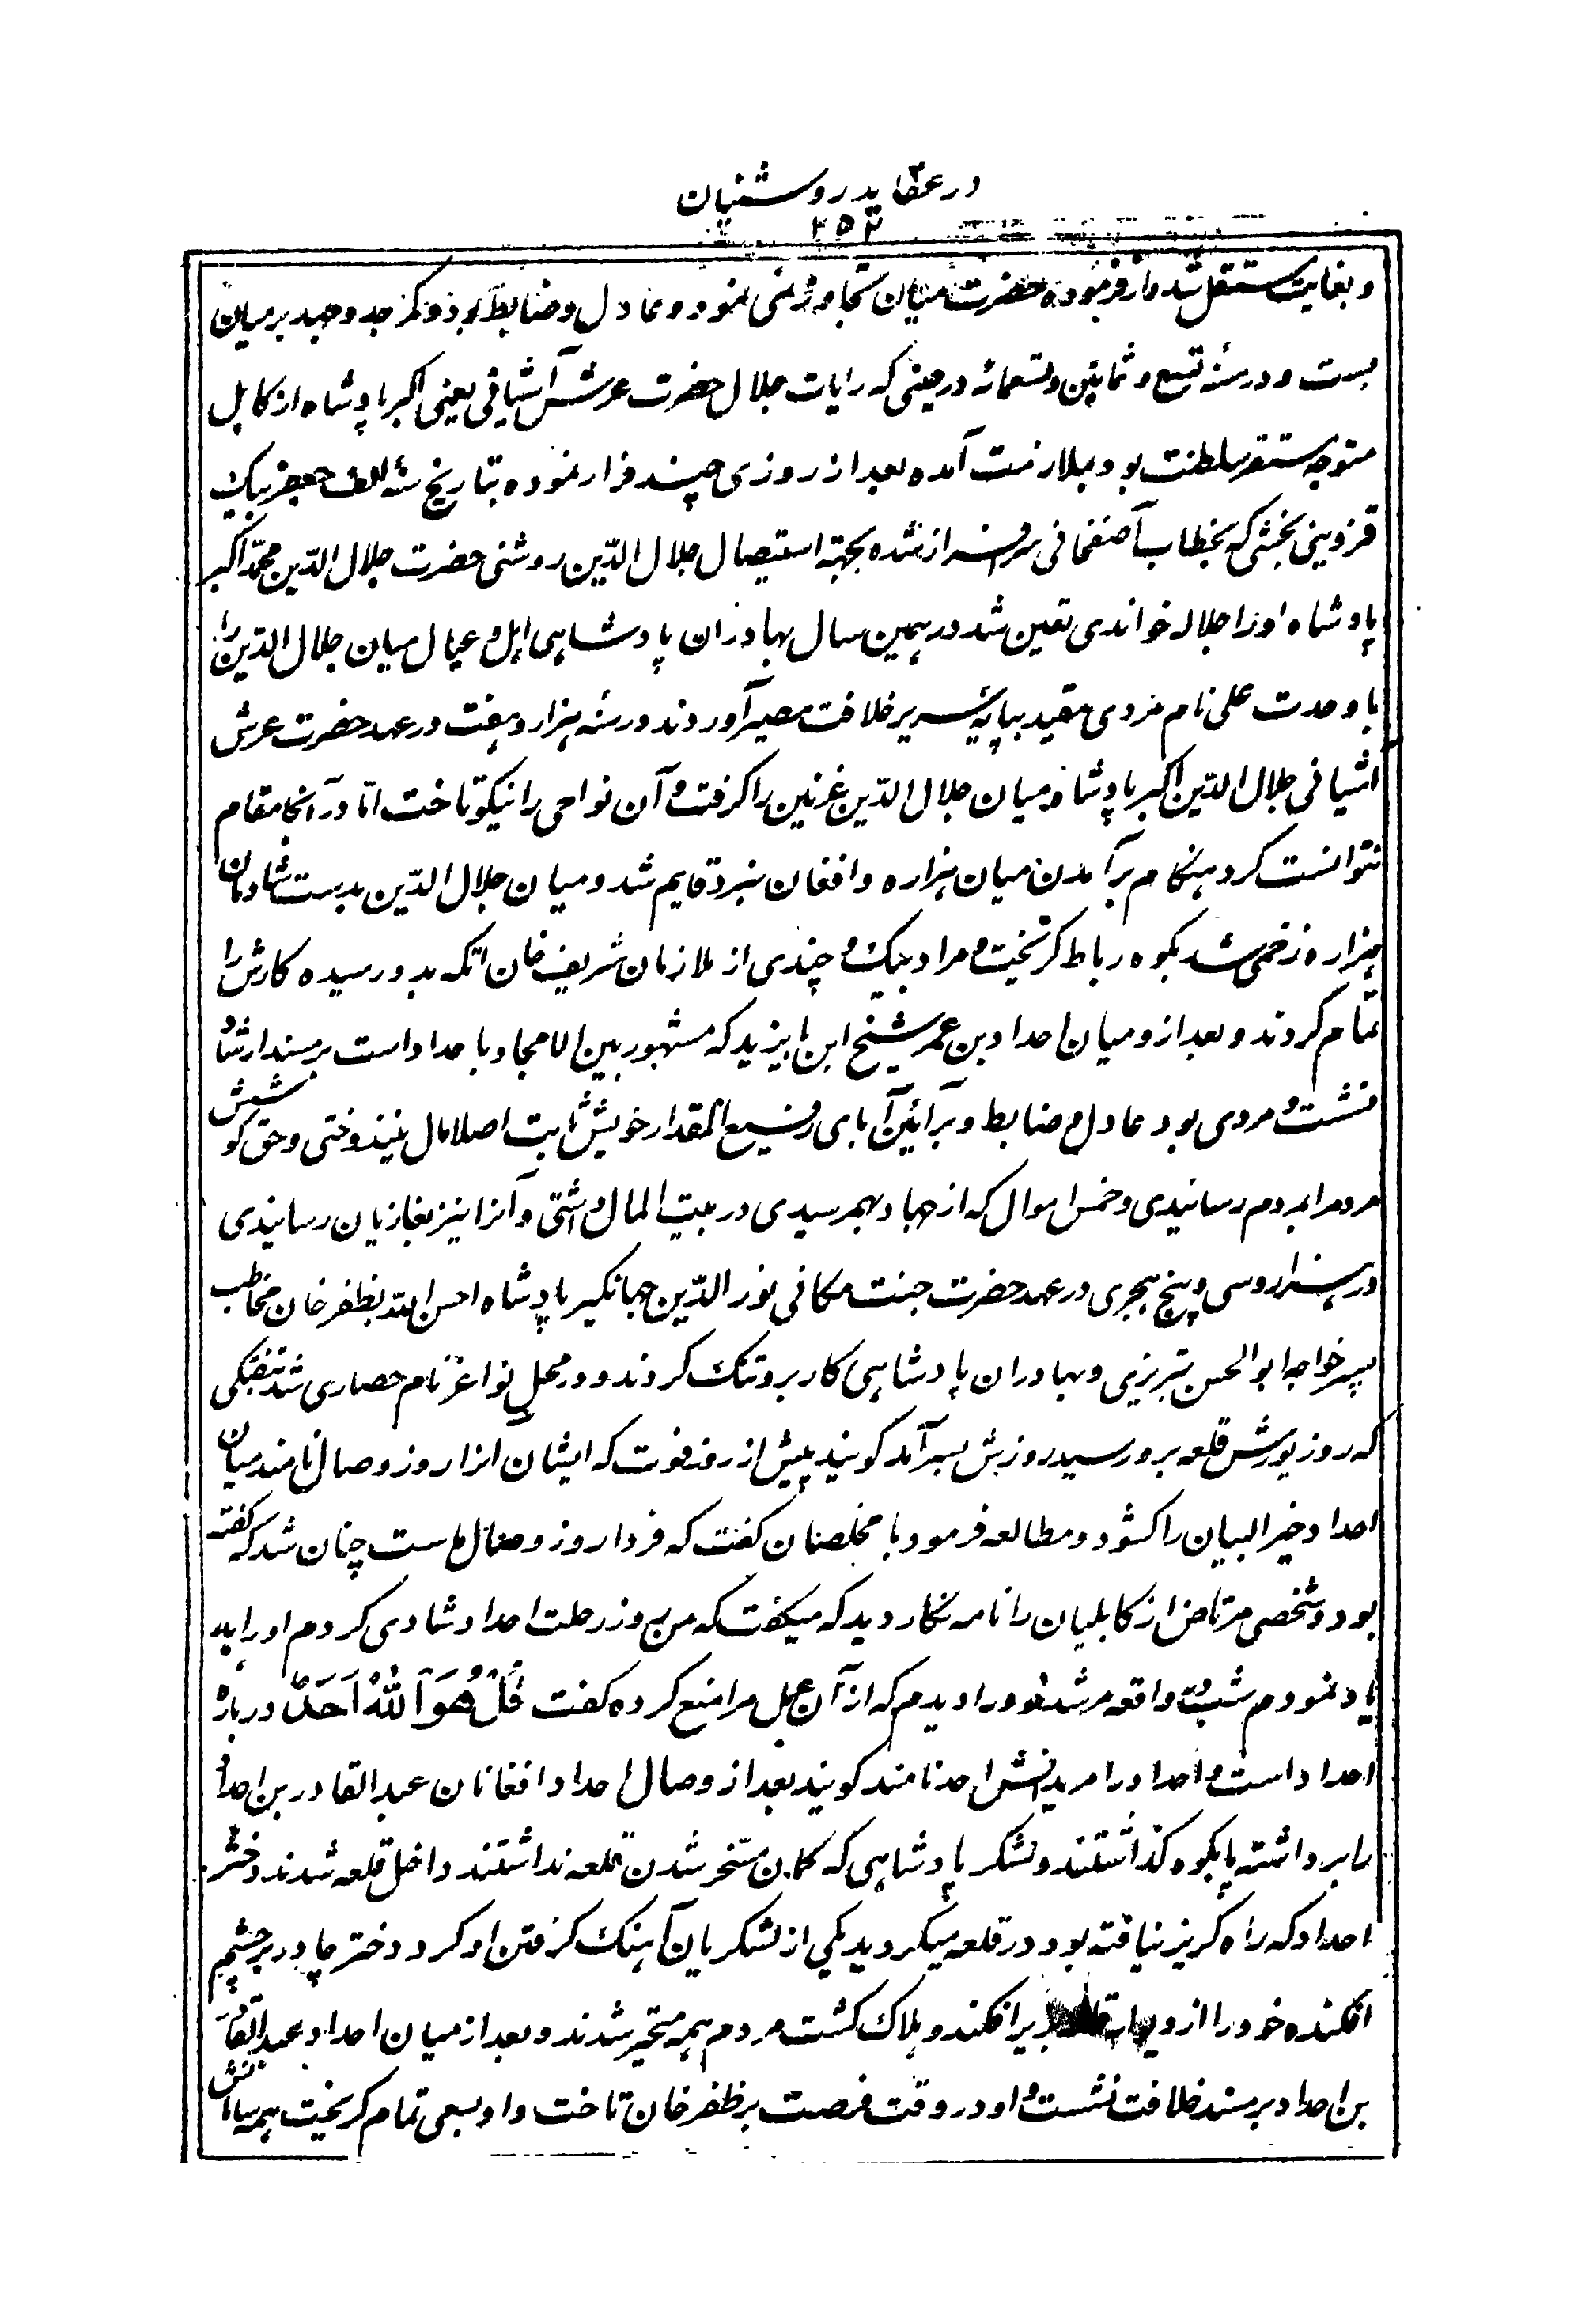 در عقاید روشنیان
۲۵۳
و بغایت مستقل شد و از فرموده حضرت میان تجاوز نمی نمود و عادل و ضابط بود و کمر جد و جهد بر میان
بست و در سنه تسع و ثمانین و تسعمائه در حینی که رایات جلال حضرت عرش آشیانی یعنی اکبر پادشاه از کابل
متوجه مستقر سلطنت بود بملازمت آمده بعد از روزی چند فرار نموده بتاریخ سنه الف جعفر بیک
قزوینی بخشی که بخطاب آصفخانی سرافراز شده بجهته استیصال جلال الدین روشنی حضرت جلال الدین محمد اکبر
پادشاه اورا جلاله خواندی تعین شد در همین سال بهادران پادشاهی اهل و عیال میان جلال الدین را
با وحدت علی نام مردی مقید بپایه سریر خلافت مصیر آوردند در سنه هزار و هفت در عهد حضرت عرش
آشیانی جلال الدین اکبر پادشاه میان جلال الدین غزنین را گرفت و آن نواحی را نیکو تاخت اما در آنجا مقام
نتوانست کرد هنکام برآمدن میان هزاره و افغان نبرد قایم شد و میان جلال الدین بدست شادمان
هزاره زخمی شد بکوه رباط کریخت و مراد بیک و چندی از ملازمان شریف خان اتکه بدو رسیده کارش را
تمام کردند و بعد ازو میان احداد بن عمر شیخ ابن بایزید که مشهور بین الامجاد باحداد است بر مسند ارشاد
نشست و مردی بود عادل و ضابط و بر آئین آبای رفیع المقدار خویش ثابت اصلا مال نیندوختی و حق کوشش
مردم را بمردم رسانیدی و خمس اموال که از جهاد بهمرسیدی در بیت المال داشتی و آنرا نیز بغازیان رسانیدی
در هزار و سی و پنج هجری در عهد حضرت جنت مکانی نور الدین جهانگیر پادشاه احسن الله بظفر خان مخاطب
پسر خواجه ابو الحسن تبریزی و بهادران پادشاهی کار برو تنک کردند و در محل نواغر نام حصاری شد تفنکی
که روز یورش قلعه برو رسید روزش بسر آمد کویند پیش از روز فوت که ایشان انرا روز وصال نامند میان
احداد خیر البیان را کشود و مطالعه فرمود با مخلصان کفت که فردا روز وصال ماست چنان شد که کفته
بود و شخصی مرتاض از کابلیان را نامه نکار دید که میکفت که من بروز رحلت احداد شادی کردم او را ببد
یاد نمودم شب در واقعه مرشد خود را دیدم که از آن عمل مرا منع کرده کفت قُلْ هُوَ اللهُ اَحَدٌ در باره
احداد است و احداد را مریدانش احد نامند کویند بعد از وصال احداد افغانان عبد القادر بن احداد
را برداشته پا بکوه کذاشتند و لشکر پادشاهی که کمان مسخر شدن قلعه نداشتند داخل قلعه شدند دختر
احداد که راه کریز نیافته بود در قلعه میکردید یکی از لشکریان آهنک کرفتن او کرد دختر چادر بر چشم
افکنده خود را از دیوار قلعه بزیر افکند و هلاک کشت مردم همه متحیر شدند و بعد از میان احداد عبد القادر
بن احداد بر مسند خلافت نشست و او در وقت فرصت بر ظفر خان تاخت و او بسعی تمام کریخت همه